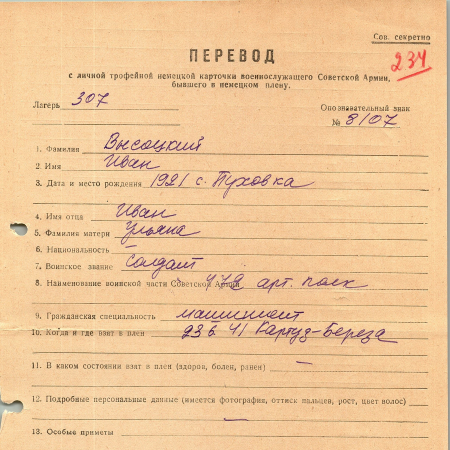 Сов. секретно
234
ПЕРЕВОД
с личной трофейной немецкой карточки военнослужащего Советской Армии,
бывшего в немецком плену.
Лагерь 307
Опознавательный знак
№ 8107
1. Фамилия Высоцкий
2. Имя Иван
3. Дата и место рождения 1921 с. Пуховка
4. Имя отца Иван
5. Фамилия матери Ульяна
6. Национальность —
7. Воинское звание Солдат
8. Наименование воинской части Советской Армии арт. полк
9. Гражданская специальность машинист
10. Когда и где взят в плен 23 6. 41 Картуз-Береза
11. В каком состоянии взят в плен (здоров, болен, ранен) —
12. Подробные персональные данные (имеется фотография, оттиск пальцев, рост, цвет волос)
—
13. Особые приметы